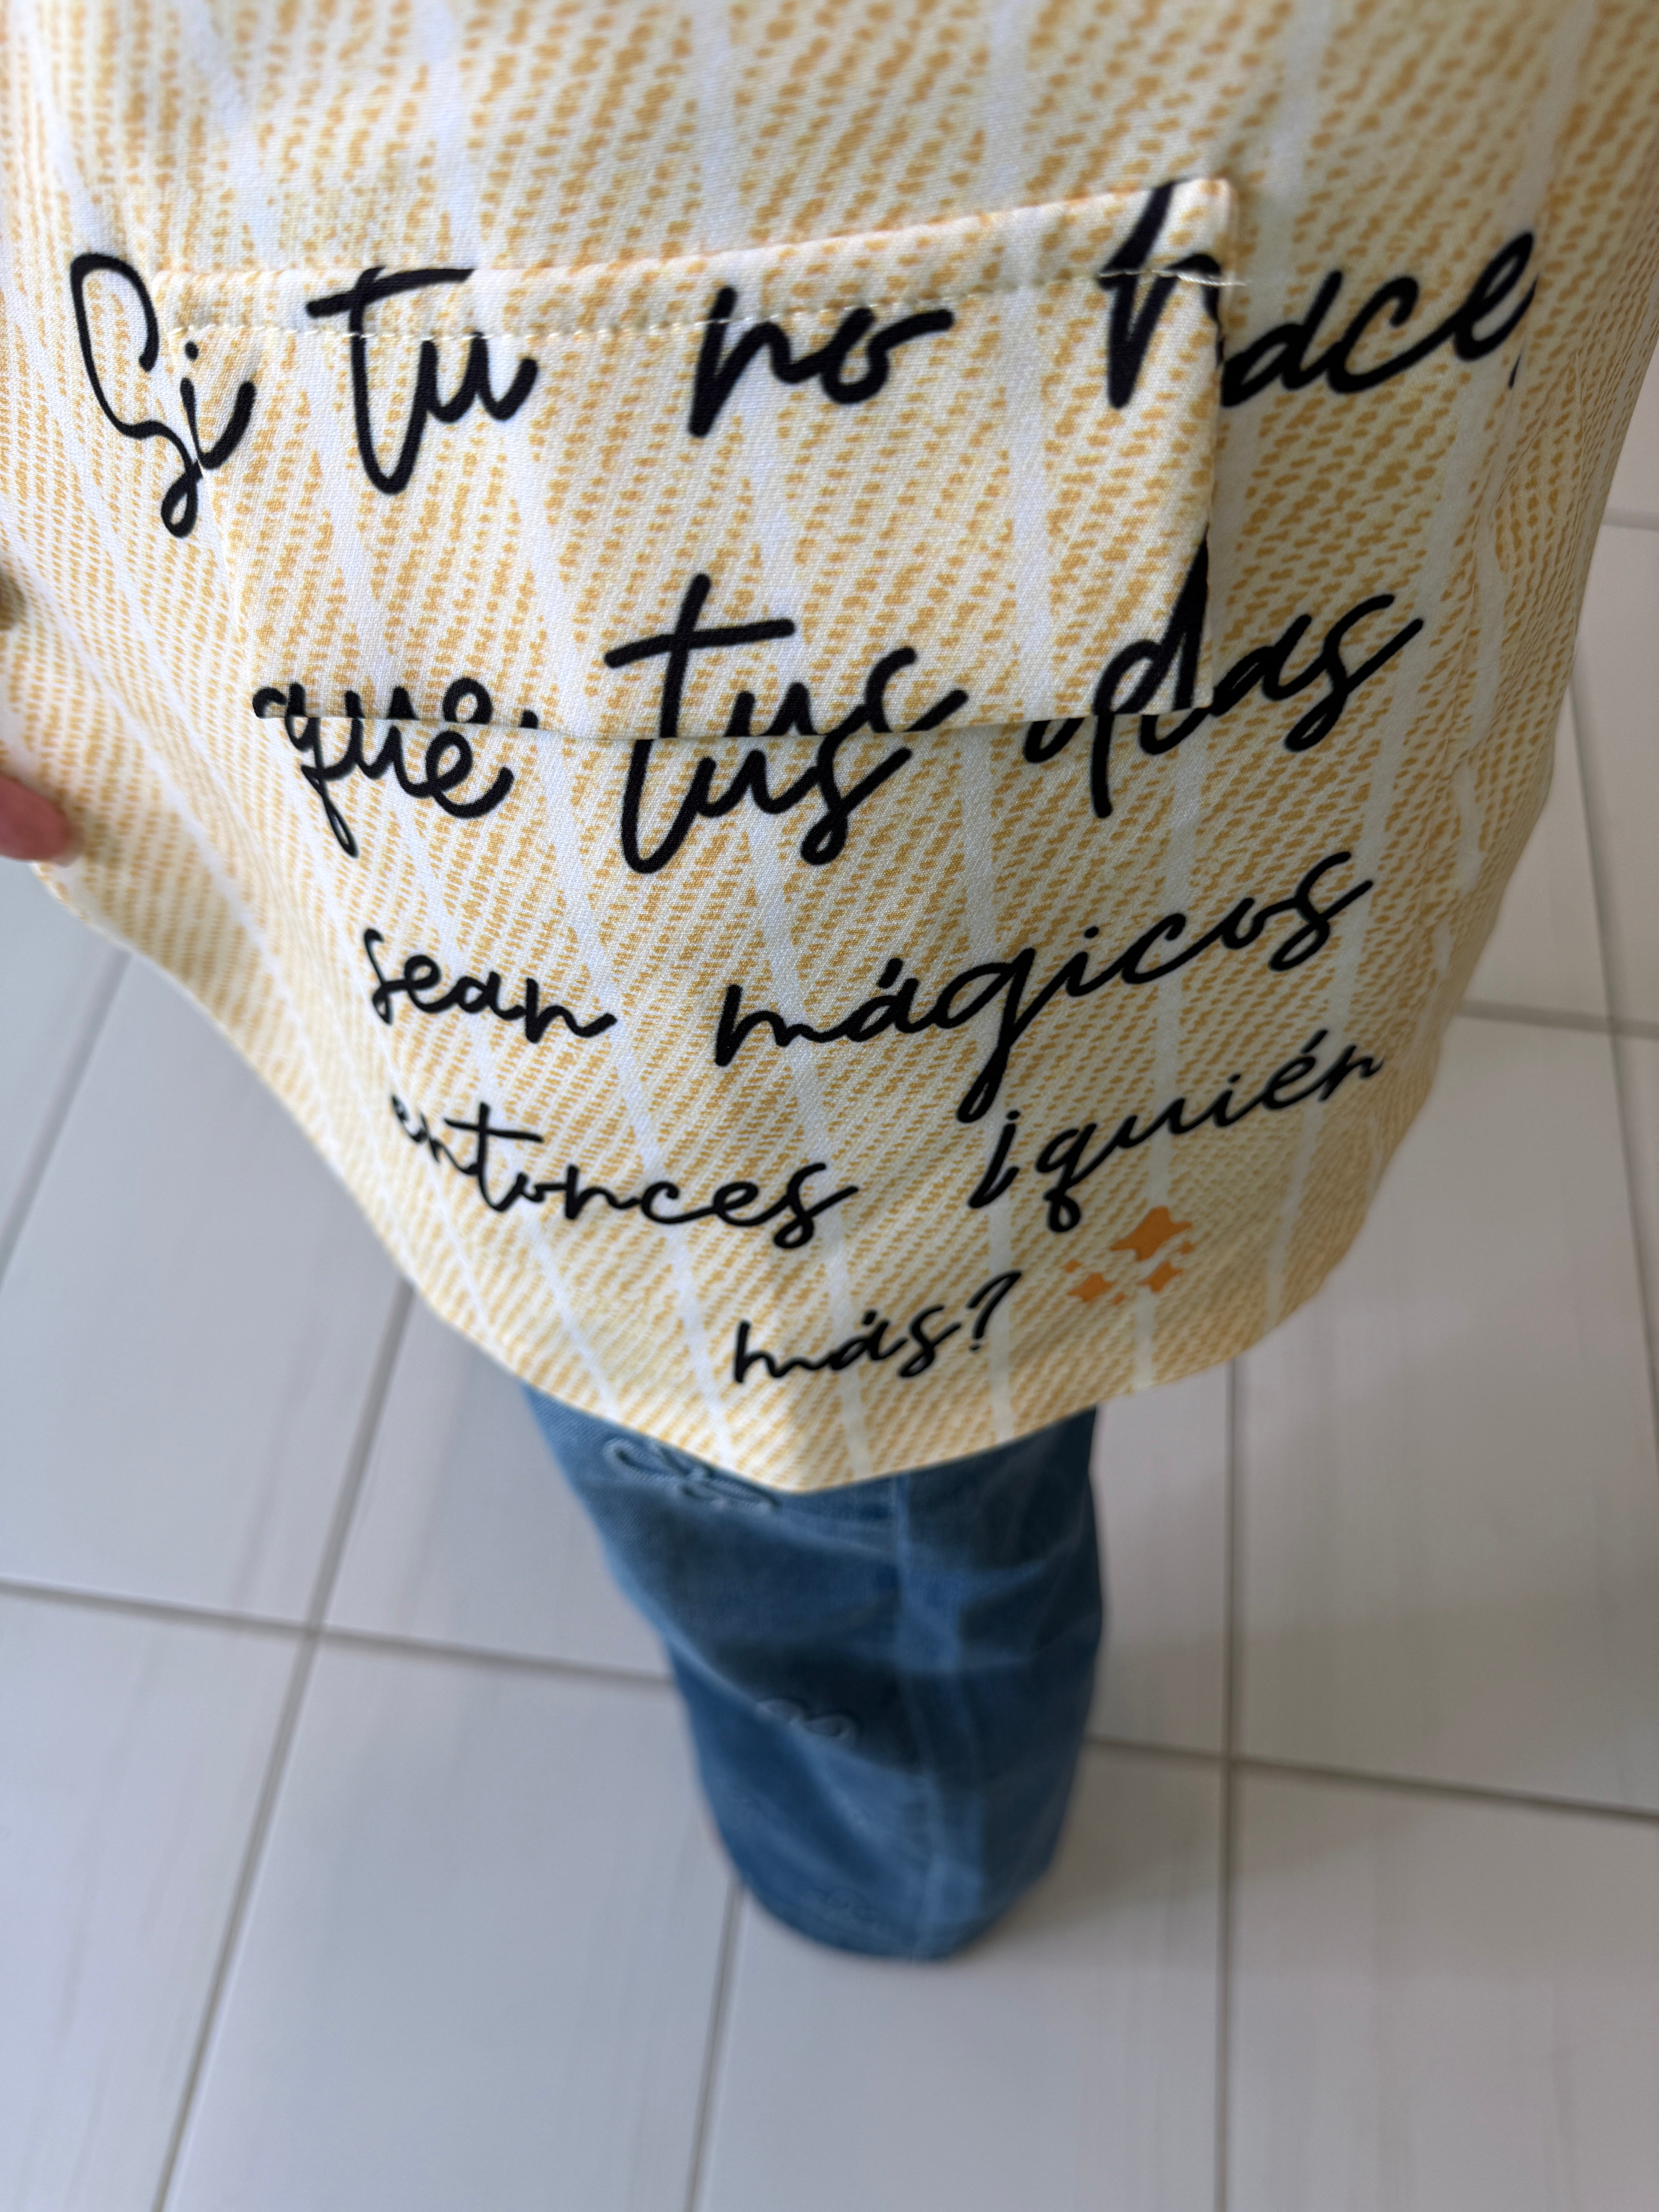 Si tu no hace
que tus días
sean mágicos
entonces ¿quién
más?